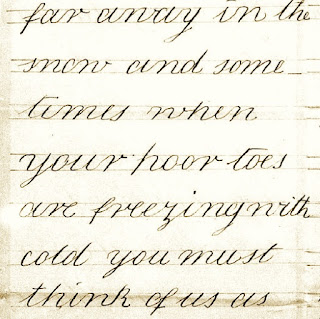 far away in the
snow and some-
times when
your poor toes
are freezing with
cold you must
think of us as